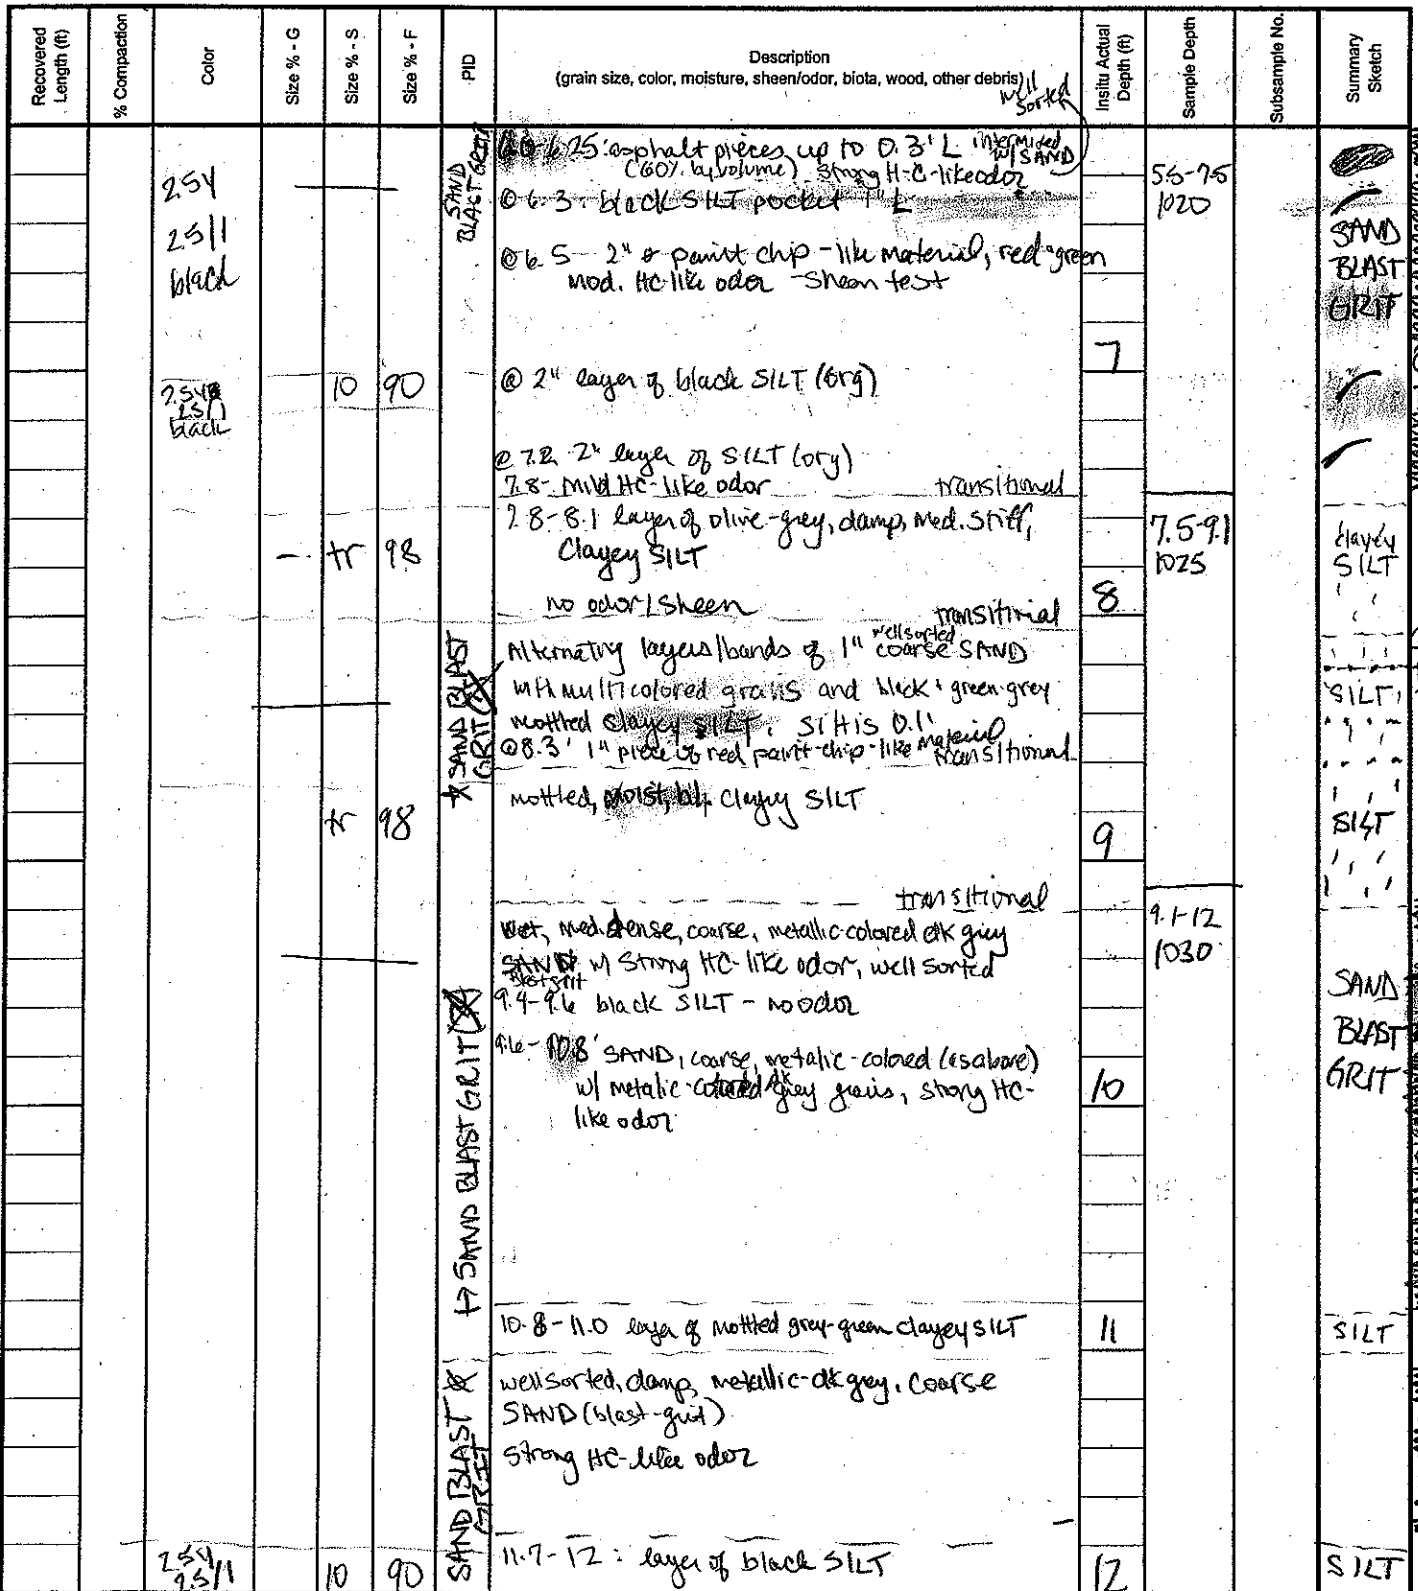 Recovered Length (ft)
% Compaction
Color
Size % - G
Size % - S
Size % - F
PID
Description
(grain size, color, moisture, sheen/odor, biota, wood, other debris)
Insitu Actual Depth (ft)
Sample Depth
Subsample No.
Summary Sketch
well sorted
6.25: asphalt pieces up to 0.3' L intermixed w/ SAND
(60% by volume) strong H-C-like odor
@ 6.3: black SILT pocket 1" L
@ 6.5 - 2" ø paint chip-like material, red-green
mod. HC-like odor - Sheen test
SAND BLAST GRIT
2.5Y
2.5/1
black
5.5-7.5
1020
SAND
BLAST
GRIT
7
2.5Y
2.5/1
black
10
90
@ 2" layer of black SILT (org)
@ 7.2 2" layer of SILT (org)
7.8- Mild HC-like odor
transitional
7.8-8.1 layer of olive-grey, damp, med. stiff,
Clayey SILT
no odor/sheen
transitional
-
tr
98
7.5-9.1
1025
8
clayey
SILT
Alternating layers/bands of 1" well sorted coarse SAND
with multicolored grains and black + green-grey
mottled clayey SILT. Silt is 0.1'
@8.3' 1" piece of red paint-chip-like material
transitional
SAND BLAST GRIT
SILT
mottled, moist, blk clayey SILT
tr
98
9
SILT
transitional
Wet, med. dense, coarse, metallic-colored dk grey
SAND w/ strong HC-like odor, well sorted
blast grit
9.4-9.6 black SILT - no odor
9.6-10.8' SAND, coarse, metalic-colored (as above)
w/ metalic-colored dk grey grains, strong HC-
like odor
9.1-12
1030
SAND BLAST GRIT
10
SAND
BLAST
GRIT
10.8-11.0 layer of mottled grey-green clayey SILT
11
SILT
well sorted, damp, metallic-dk grey, coarse
SAND (blast-grit)
strong HC-like odor
SAND BLAST GRIT
11.7-12: layer of black SILT
2.5Y
2.5/1
10
90
12
SILT